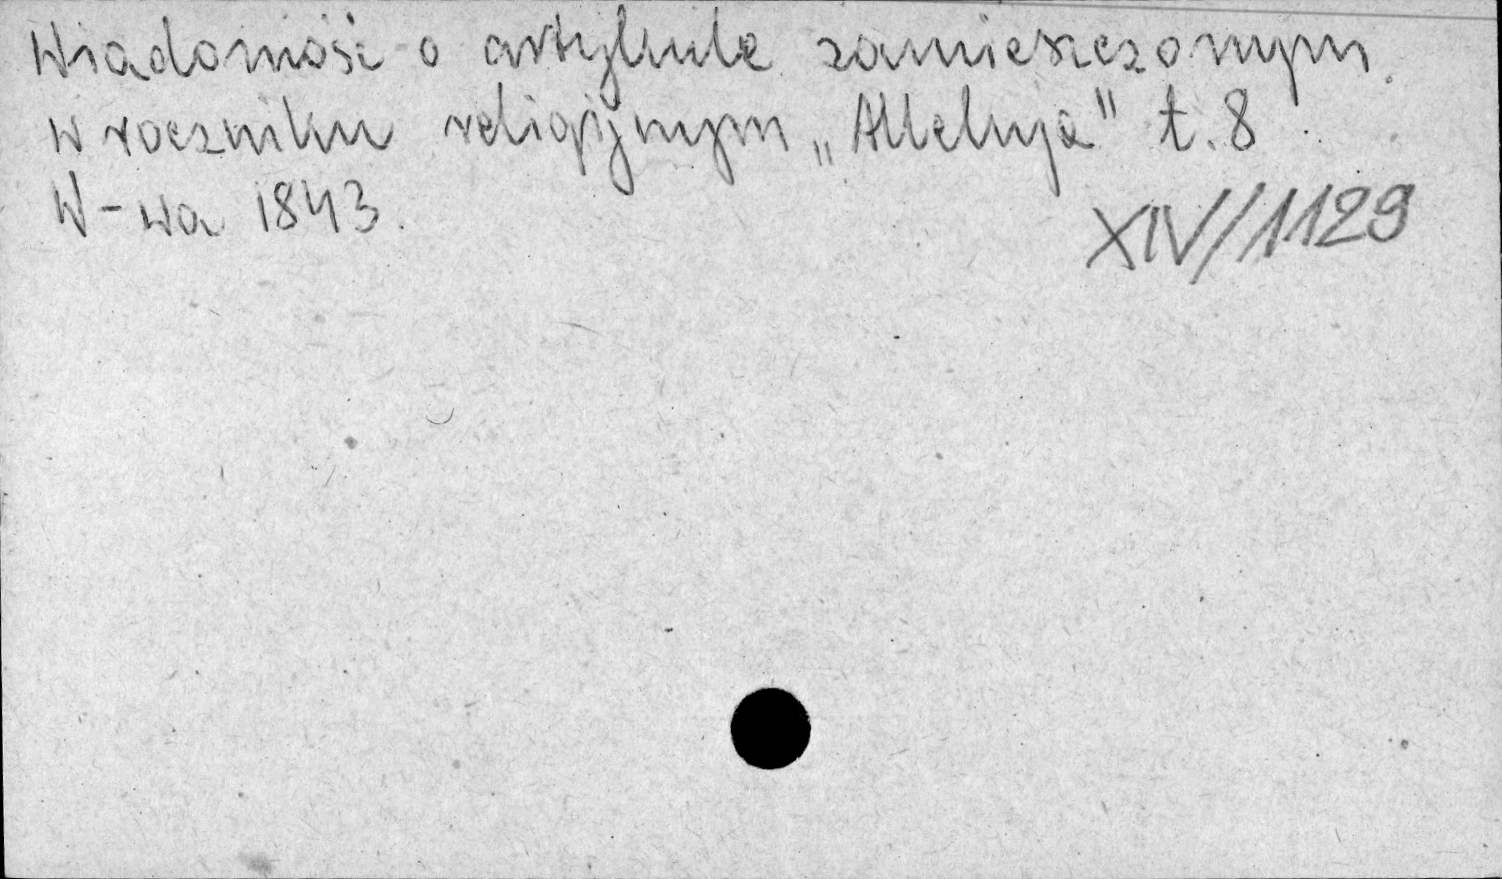 Wiadomość o artykule zamieszczonym
w roczniku religijnym „Alleluja" t. 8
W-wa 1843.
XIV/1129